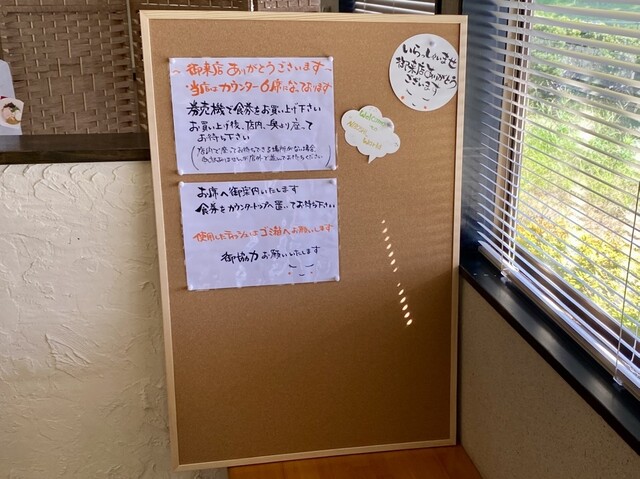 ～御来店ありがとうございます～
・当店はカウンター6席になっております
券売機で食券をお買い上げ下さい
お買い上げ後、店内、奥より座って
お待ち下さい
お席へ御案内いたします
食券をカウンタートップへ置いてお待ち下さい
使用したティッシュはゴミ箱へお願いします
御協力お願いいたします
いらっしゃいませ
御来店ありがとう
ございます
Welcome